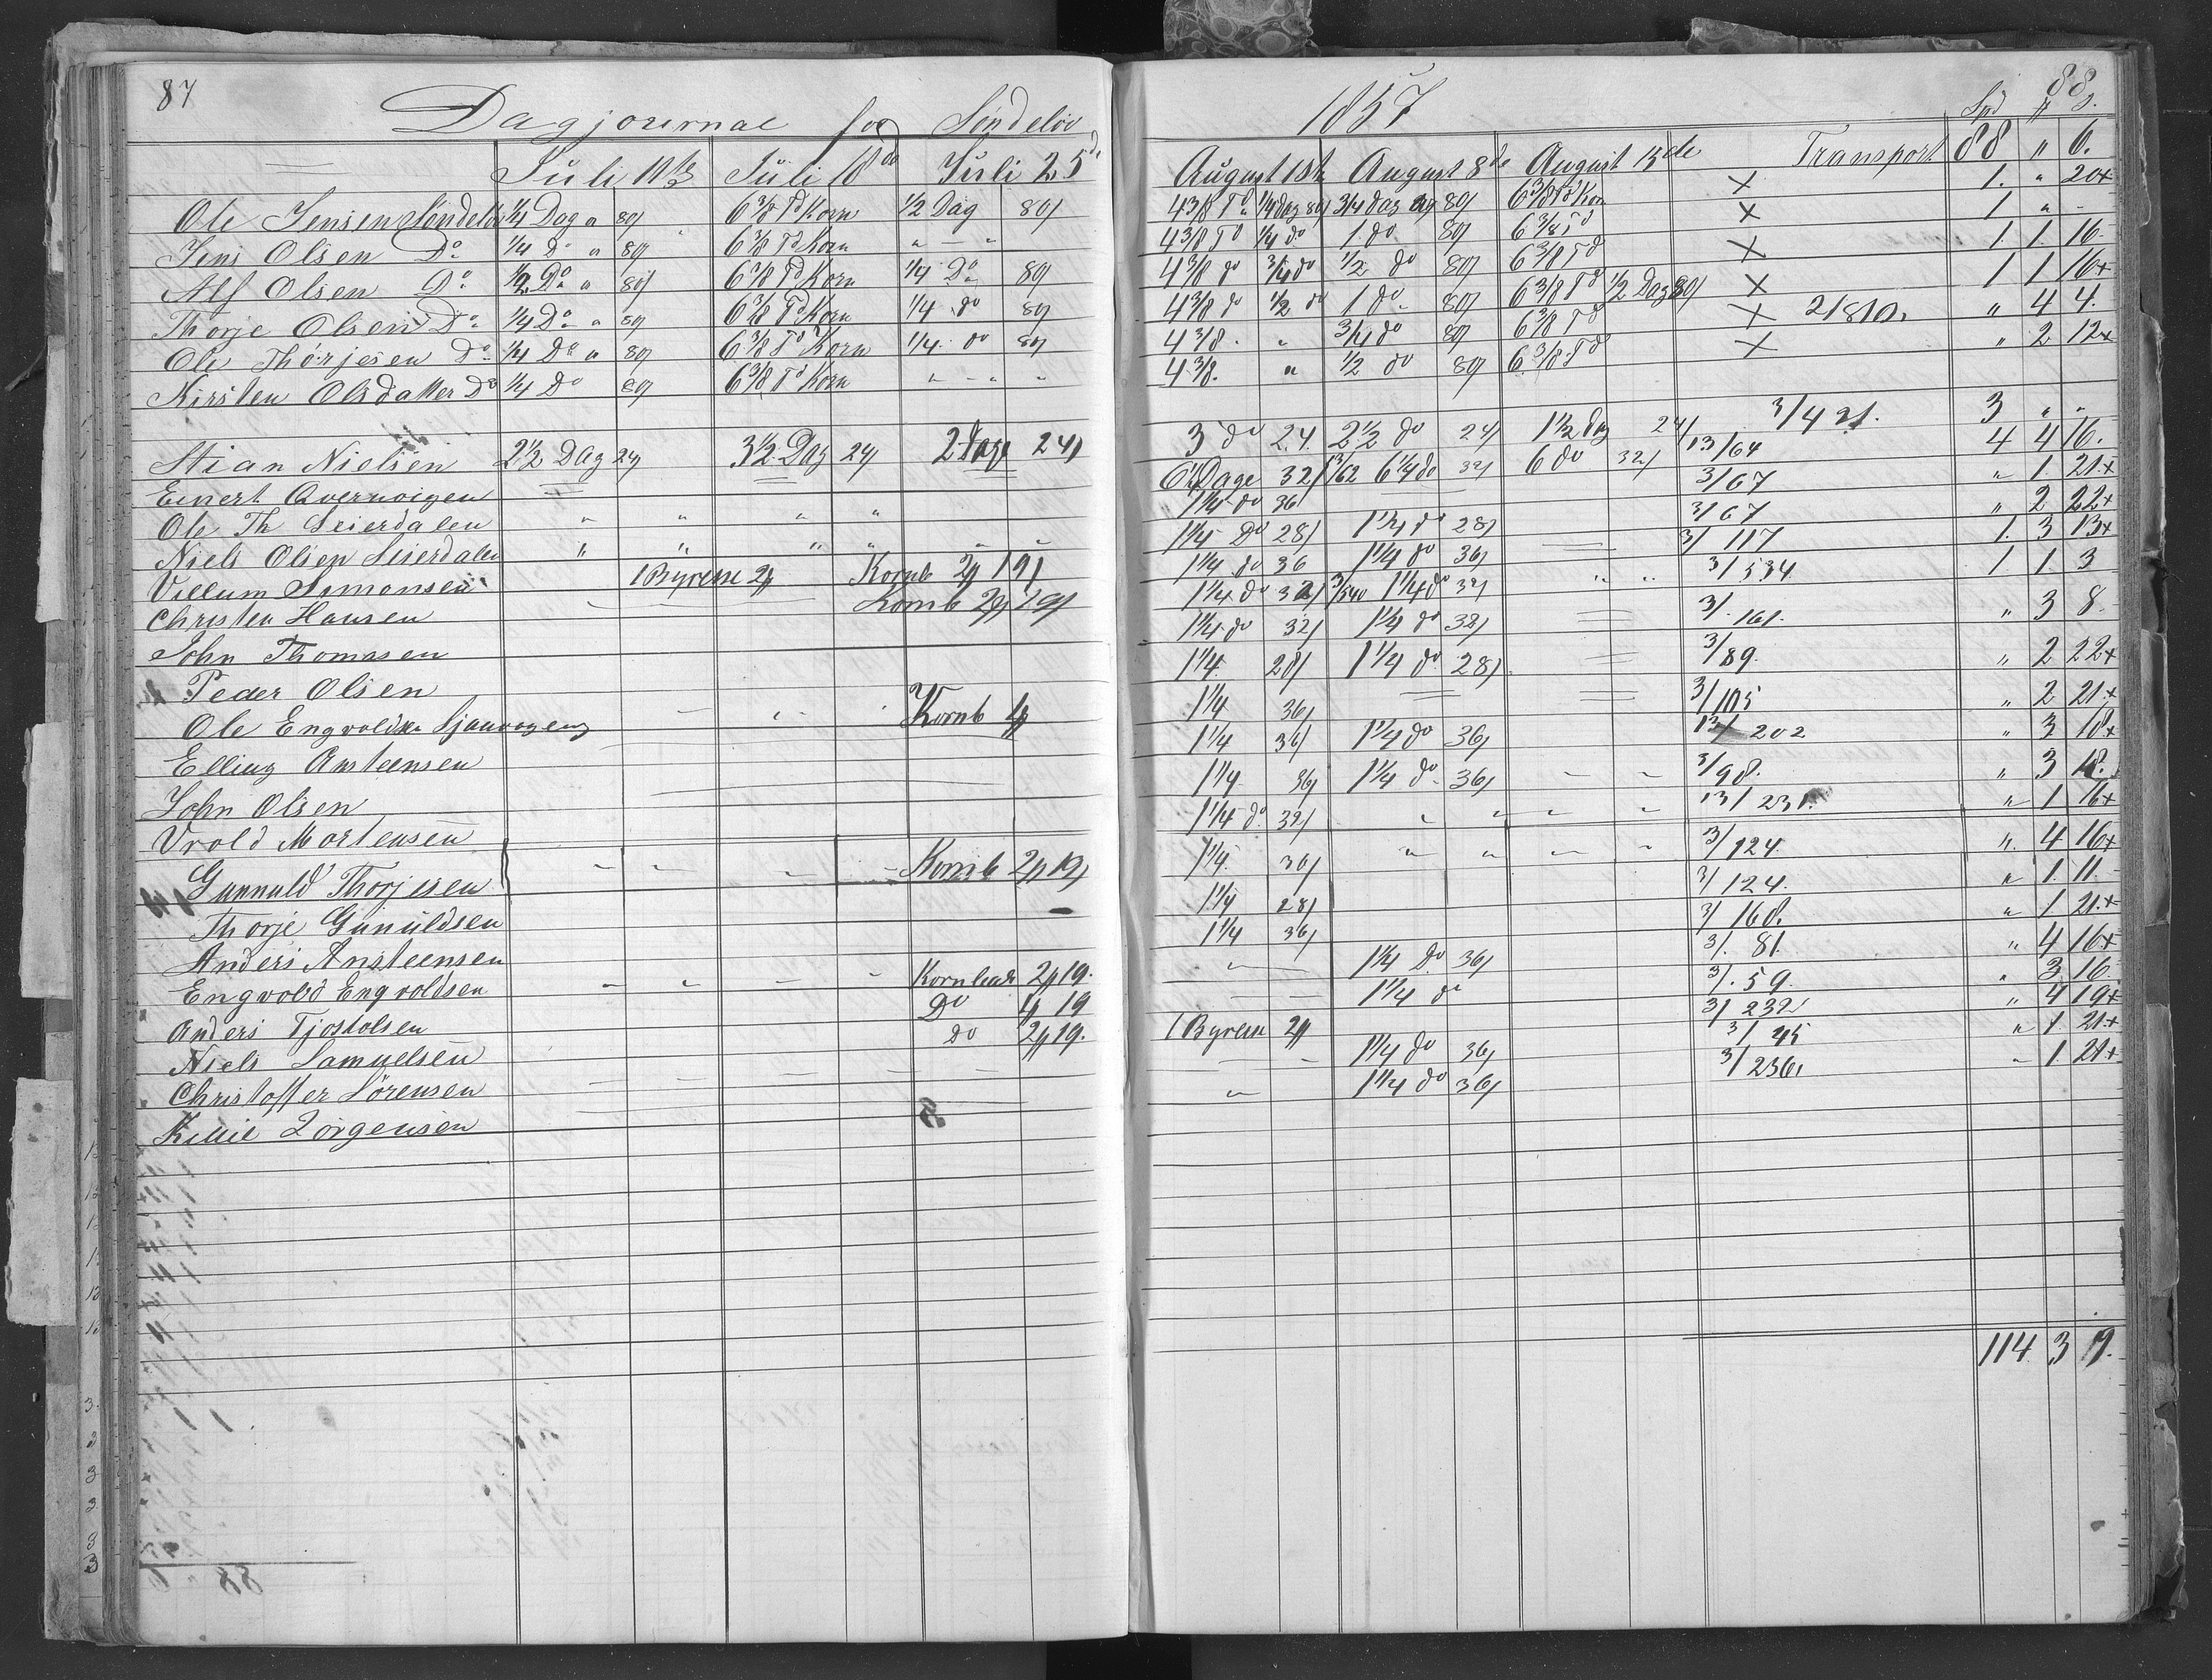 87
Dagjournal for Søndeløv
Juli 11te Juli 18de Juli 25de
Ole Jensen Søndeløv 1/4 Dag a 80/ 6 3/8 Td Korn 1/2 Dag 80/
Jens Olsen Do 1/4 Do a 80/ 6 3/8 Td Korn " - "
Alf Olsen Do 1/2 Do a 80/ 6 3/8 Td Korn 1/4 Do 80/
Thorje Olsen Do 1/4 Do a 80/ 6 3/8 Td Korn 1/4 do 80/
Ole Thorjesen Do 1/4 Do a 80/ 6 3/8 Td Korn 1/4 do 80/
Kirsten Olsdatter Do 1/4 Do 80/ 6 3/8 Td Korn " - " "
Stian Nielsen 2 1/2 Dag 24/ 3 1/2 Dag 24/ 2 Dage 24/
Einert
Ole Th Seierdalen " " " "
Niels Olsen Seierdalen " " " " - -
Villum Simonsen 1 Byrene 2 Kornb 2 19/
Christen Hansen - - - Kornb 2 19/
John Thomasen
Peder Olsen
Ole Engvoldsen Kornb
Elling Ansteensen
John Olsen
Vrold Mortensen
Gunnuld Thorjesen - - - - Kornb 2 19/
Thorje Gunuldsen
Anders Ansteensen
Engvold Engvoldsen - - - - 2 19.
Anders Tjostolsen Do 19
Niels Samuelsen do 2 19.
Christoffer Sörensen
Jörgensen
1857
88
Spd
August 1ste August 8de August 15de Transport 88 " 6.
4 3/8 Td 1/4 dag 80/ 3/4 dag 80/ 6 3/8 Td Kor x 1. " 20+
4 3/8 Td 1/4 do 1 do 80/ 6 3/8 Td x 1 " -
4 3/8 do 3/4 do 1/2 do 80/ 6 3/8 Td x 1. 1. 16-
4 3/8 do 1/2 do 1 do 80/ 6 3/8 Td 1/2 Dag 80/ x 1 1 16+
4 3/8 . " 3/4 do 80/ 6 3/8 Td x 2/810. " 4 4.
4 3/8. " 1/2 do 80/ 6 3/8 Td x " 2 12+
3 do 24. 2 1/2 do 24/ 1 1/2 dag 24/ 3/421. 3 " "
6 Dage 32/ 13/62 6 1/4 do 32/ 6 do 32/ 13/64 4 4 16.
1 1/4 do 36/ 3/67 " 1. 21+
1 1/4 Do 28/ 1 1/4 do 28/ 3/67 " 2 22+
1 1/4 do 36 1 1/4 do 36/ 3/117 1. 3 13+
1 1/4 do 32/ 3/540 1 1/4 do 32/ " " 3/534 1 1 3
1 1/4 do 32/ 1 1/4 do 32/ 3/. 161. " 3 8-
1 1/4. 28/ 1 1/4 do 28/ 3/89. " 2 22+
1 1/4 36/ 3/105 " 2 21+
1 1/4 36/ 1 1/4 do 36/ 13/202 " 3 18+
1 1/4 36/ 1 1/4 do 36/ - - 3/98. " 3 18.
1 1/4 do 32/ " " " " 13/231. " 1. 16+
1 1/4. 36/ " " " " 3/124. " 4 16+
1 1/4 28/ 3/124. " 1. 11-
1 1/4 36/ 3/168. " 1 21+
" - 1 1/4 Do 36/ 3/. 81. " 4 16+
- - 1 1/4 do 3/. 59. " 3 16-
1 Byrene 2 3/232 " 4 19+
- - 1 1/4 do 36/ 3/45 " 1. 21+
" 1 1/4 do 36/ 3/236, " 1. 21+
114 3 9.